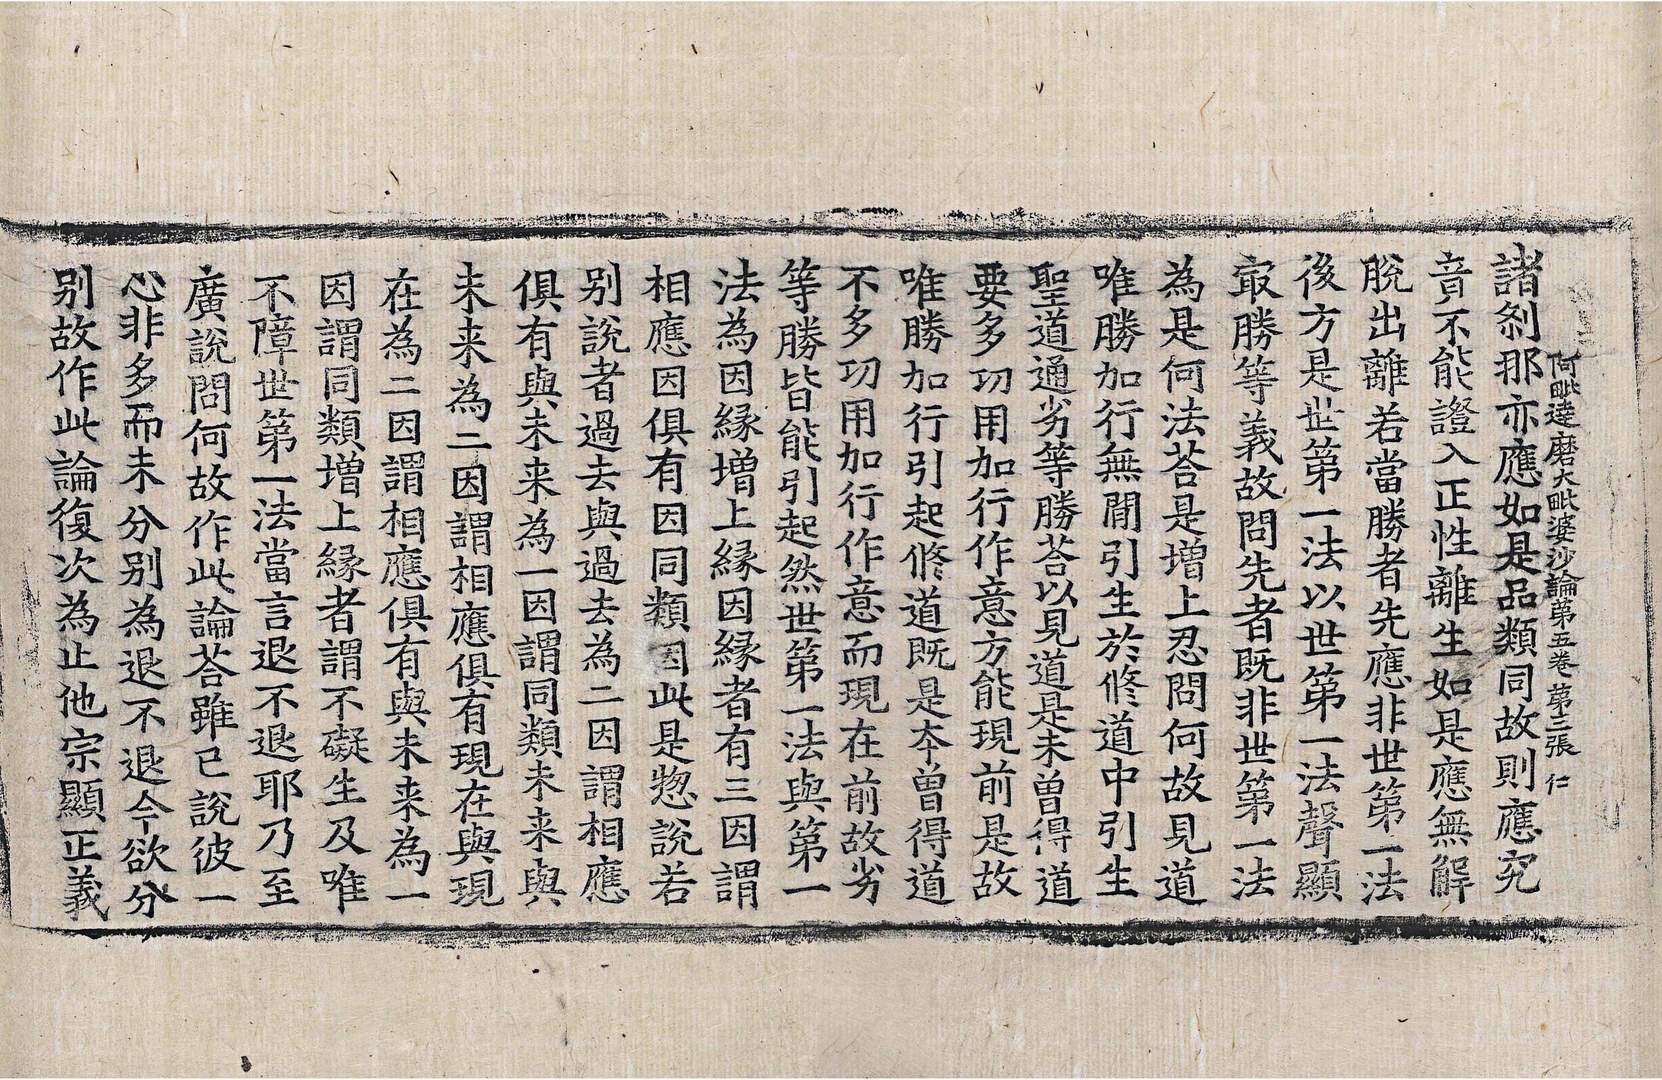 阿毗達磨大毗婆沙論第五卷 第三張 仁
諸剎那亦應如是品類同故則應究
音不能證入正性離生如是應無解
脫出離若當勝者先應非世第一法
後方是世第一法以世第一法聲顯
㝡勝等義故問先者既非世第一法
為是何法荅是增上忍問何故見道
唯勝加行無閒引生於修道中引生
聖道通劣等勝荅以見道是未曾得道
要多功用加行作意方能現前是故
唯勝加行引起修道既是本曾得道
不多功用加行作意而現在前故劣
等勝皆能引起然世第一法與第一
法為因緣增上緣因緣者有三因謂
相應因俱有因同類因此是惣說若
別說者過去與過去為二因謂相應
俱有與未来為一因謂同類未来與
未来為二因謂相應俱有現在與現
在為二因謂相應俱有與未来為一
因謂同類增上緣者謂不礙生及唯
不障世第一法當言退不退耶乃至
廣說問何故作此論荅雖已說彼一
心非多而未分別為退不退今欲分
別故作此論復次為止他宗顯正義